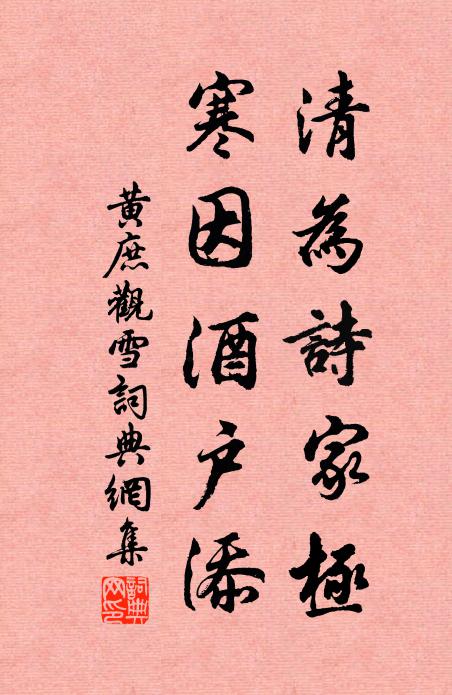 清為詩家極
寒因酒户添
黄庶觀雪詞典網集
詞典網印